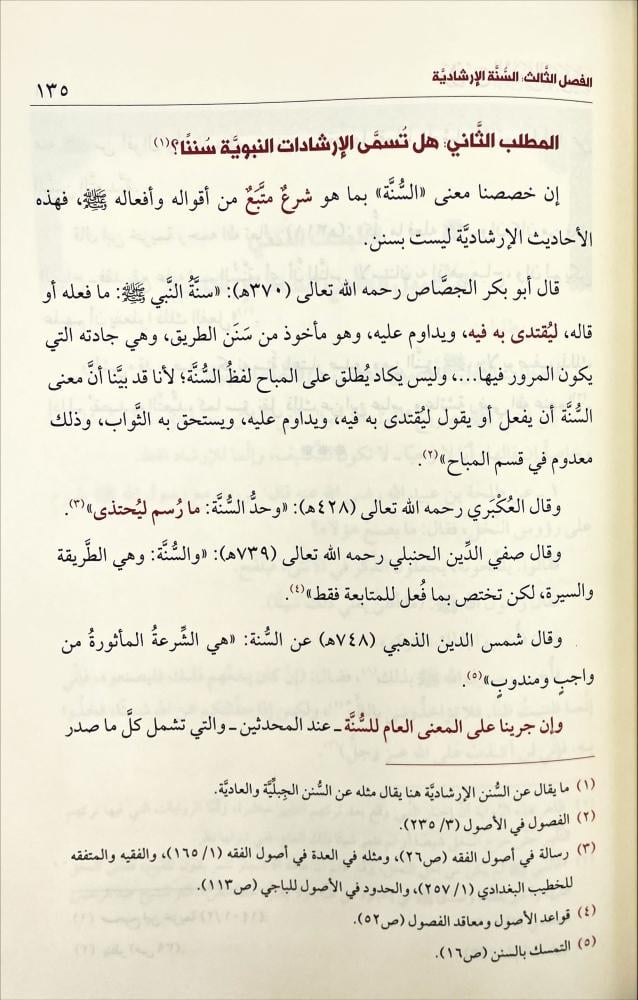 الفصل الثَّالث: السُّنَّة الإرشاديَّة
١٣٥
المطلب الثَّاني: هل تُسمَّى الإرشادات النبويَّة سُننًا؟(١)
إن خصصنا معنى «السُّنَّة» بما هو شرعٌ متَّبَعٌ من أقواله وأفعاله ﷺ، فهذه
الأحاديث الإرشاديَّة ليست بسنن.
قال أبو بكر الجصَّاص رحمه الله تعالى (٣٧٠هـ): «سنَّةُ النَّبي ﷺ: ما فعله أو
قاله، ليُقتدى به فيه، ويداوم عليه، وهو مأخوذ من سَنَن الطريق، وهي جادته التي
يكون المرور فيها...، وليس يكاد يُطلق على المباح لفظُ السُّنَّة؛ لأنا قد بيَّنا أنَّ معنى
السُّنَّة أن يفعل أو يقول ليُقتدى به فيه، ويداوم عليه، ويستحق به الثَّواب، وذلك
معدوم في قسم المباح»(٢).
وقال العُكْبَري رحمه الله تعالى (٤٢٨هـ): «وحدُّ السُّنَّة: ما رُسم ليُحتذى»(٣).
وقال صفي الدِّين الحنبلي رحمه الله تعالى (٧٣٩هـ): «والسُّنَّة: وهي الطَّريقة
والسيرة، لكن تختص بما فُعل للمتابعة فقط»(٤).
وقال شمس الدين الذهبي (٧٤٨هـ) عن السُّنة: «هي الشِّرعةُ المأثورةُ من
واجبٍ ومندوبٍ»(٥).
وإن جرينا على المعنى العام للسُّنَّة ـ عند المحدثين ـ والتي تشمل كلَّ ما صدر
(١) ما يقال عن السُّنن الإرشاديَّة هنا يقال مثله عن السُّنن الجِبليَّة والعاديَّة.
(٢) الفصول في الأصول (٣/ ٢٣٥).
(٣) رسالة في أصول الفقه (ص٢٦)، ومثله في العدة في أصول الفقه (١/ ١٦٥)، والفقيه والمتفقه
للخطيب البغدادي (١/ ٢٥٧)، والحدود في الأصول للباجي (ص١١٣).
(٤) قواعد الأصول ومعاقد الفصول (ص٥٢).
(٥) التمسك بالسنن (ص١٦).